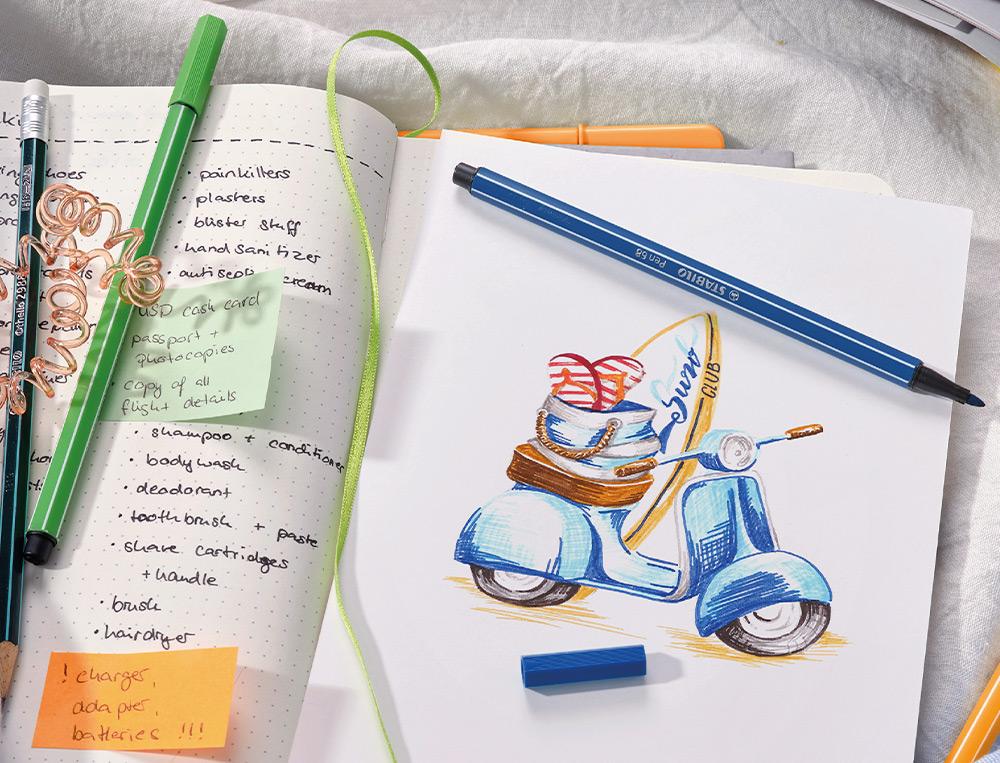 hoes
• painkillers
• plasters
• blister stuff
• hand sanitizer
• antiseptic cream
USD cash card
passport +
photocopies
• copy of all
flight details
• shampoo + conditioner
• bodywash
• deodorant
• toothbrush + paste
• shave cartridges
+ handle
• brush
• hairdryer
! charger,
adapter,
batteries !!!
Othello 2988
STABILO Pen 68
CLUB